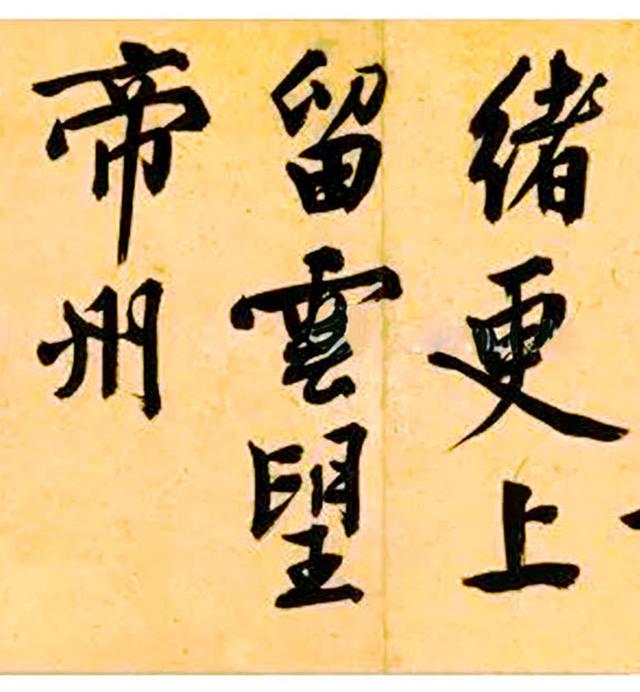 緒更上
留雲望
帝州